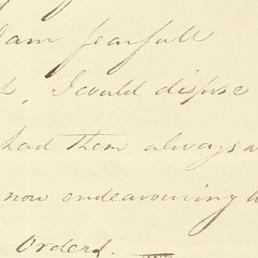 I am fearfull
, I could dispose
had them always a
now endeavouring t
Orders.